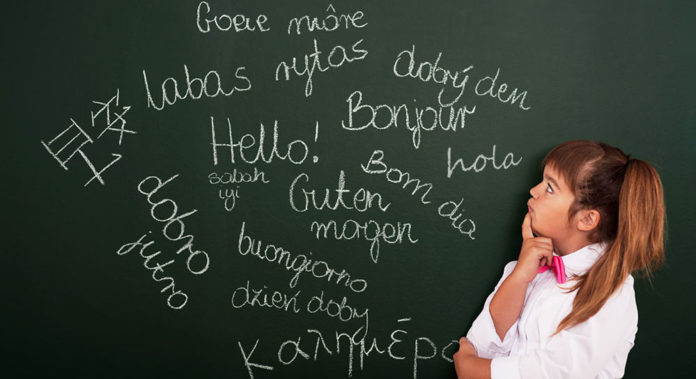 Goeie môre
labas rytas
dobrý den
Bonjour
Hello!
hola
Bom dia
sabah
iyi
Guten
morgen
dobro
jutro
buongiorno
dzień doby
καλημέρα